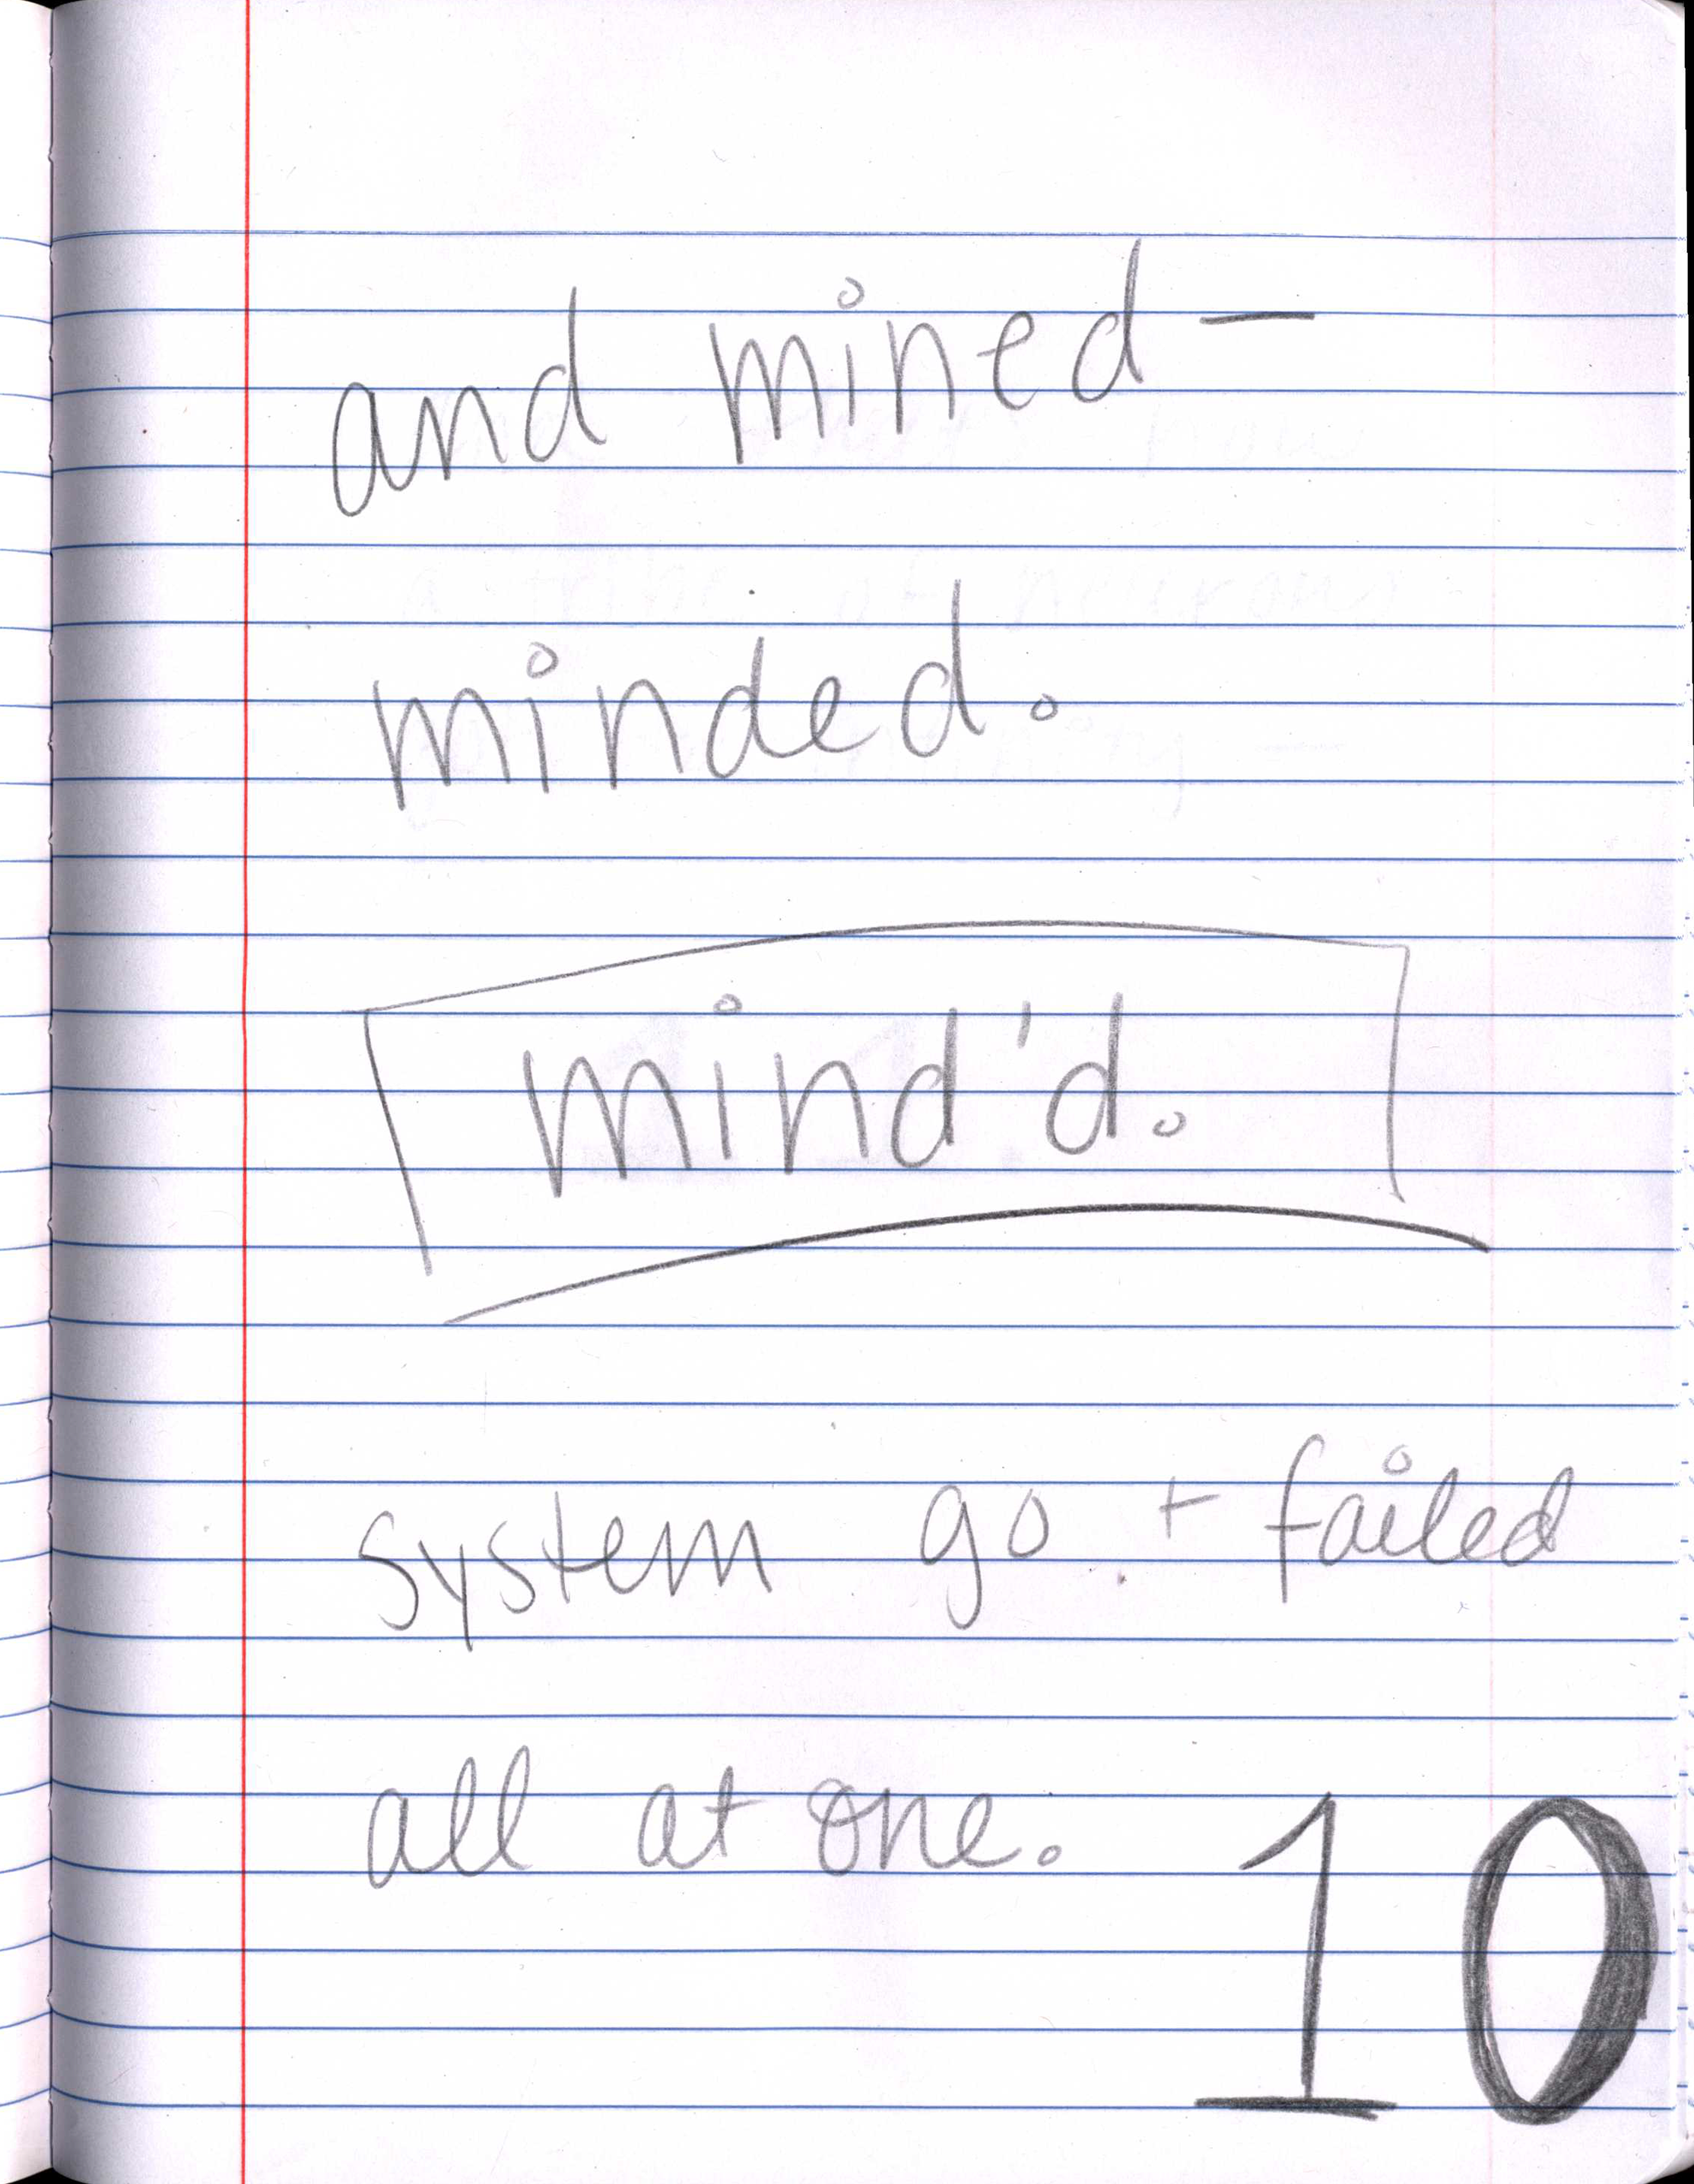 and mined—
minded.
mind'd.
system go + failed
all at one.
10